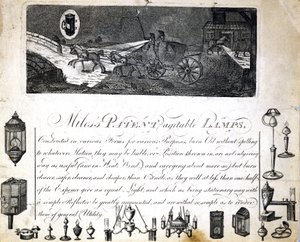 Miles's PATENT agitable LAMPS,
Constructed in various Forms for various Purposes, burn Oil without spilling
to whatever Motion they may be liable, or Position thrown in, are not
way as useful
safer, cleaner, and cheaper than Candles, as they will at less than one half
of the Expence give an equal Light, and which as being stationary may with
a simple Reflector be greatly augmented, and are so simple as to render
them of general Utility.